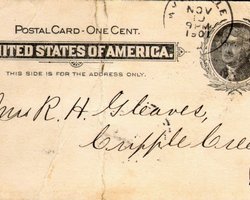 POSTAL CARD - ONE CENT.
UNITED STATES OF AMERICA.
THIS SIDE IS FOR THE ADDRESS ONLY.
NOV
9 PM
1901
Mrs R. H. Gleaves,
Cripple Cree